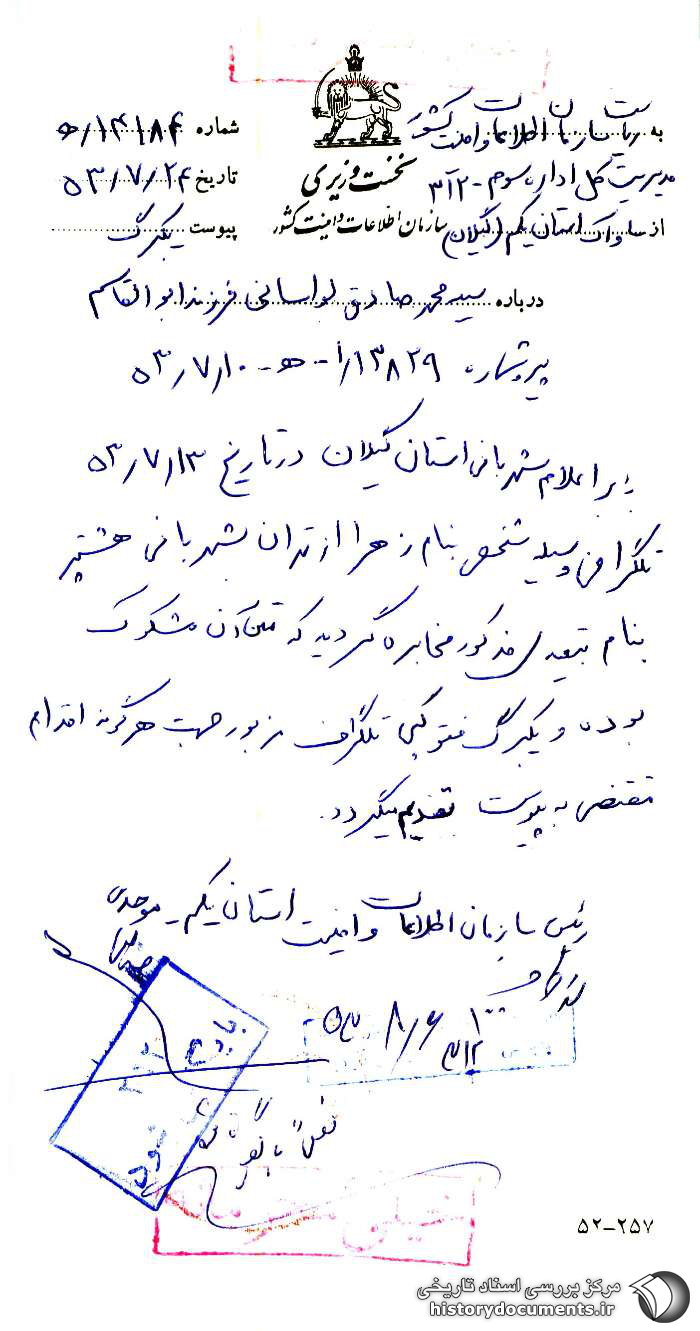 به ریاست سازمان اطلاعات و امنیت کشور
مدیریت کل اداره سوم - ۳۱۲
از ساواک استان یکم (گیلان)
نخست وزیری
سازمان اطلاعات و امنیت کشور
شماره ۱۴۱۸۴/ه
تاریخ ۵۳/۷/۲۴
پیوست یکبرگ
درباره سید محمد صادق لواسانی فرزند ابوالقاسم
پیرو شماره ۱۳۸۲۹/ - ه - ۵۳/۷/۱۰
برابر اعلام شهربانی استان گیلان در تاریخ ۵۳/۷/۱۳
تلگرافی وسیله شخصی بنام زهرا از تهران بشهربانی هشتپر
بنام تبعیدی مذکور مخابره گردیده که متن آن مشکوک
بوده و یکبرگ فتوکپی تلگراف مزبور جهت هرگونه اقدام
مقتضی به پیوست تقدیم میگردد.
رئیس سازمان اطلاعات و امنیت استان یکم - موحدی
۳۱۲
۵۳/۸/۶
بایگانی شود
خیلی محرمانه
۵۲-۲۵۷
مرکز بررسی اسناد تاریخی
historydocuments.ir